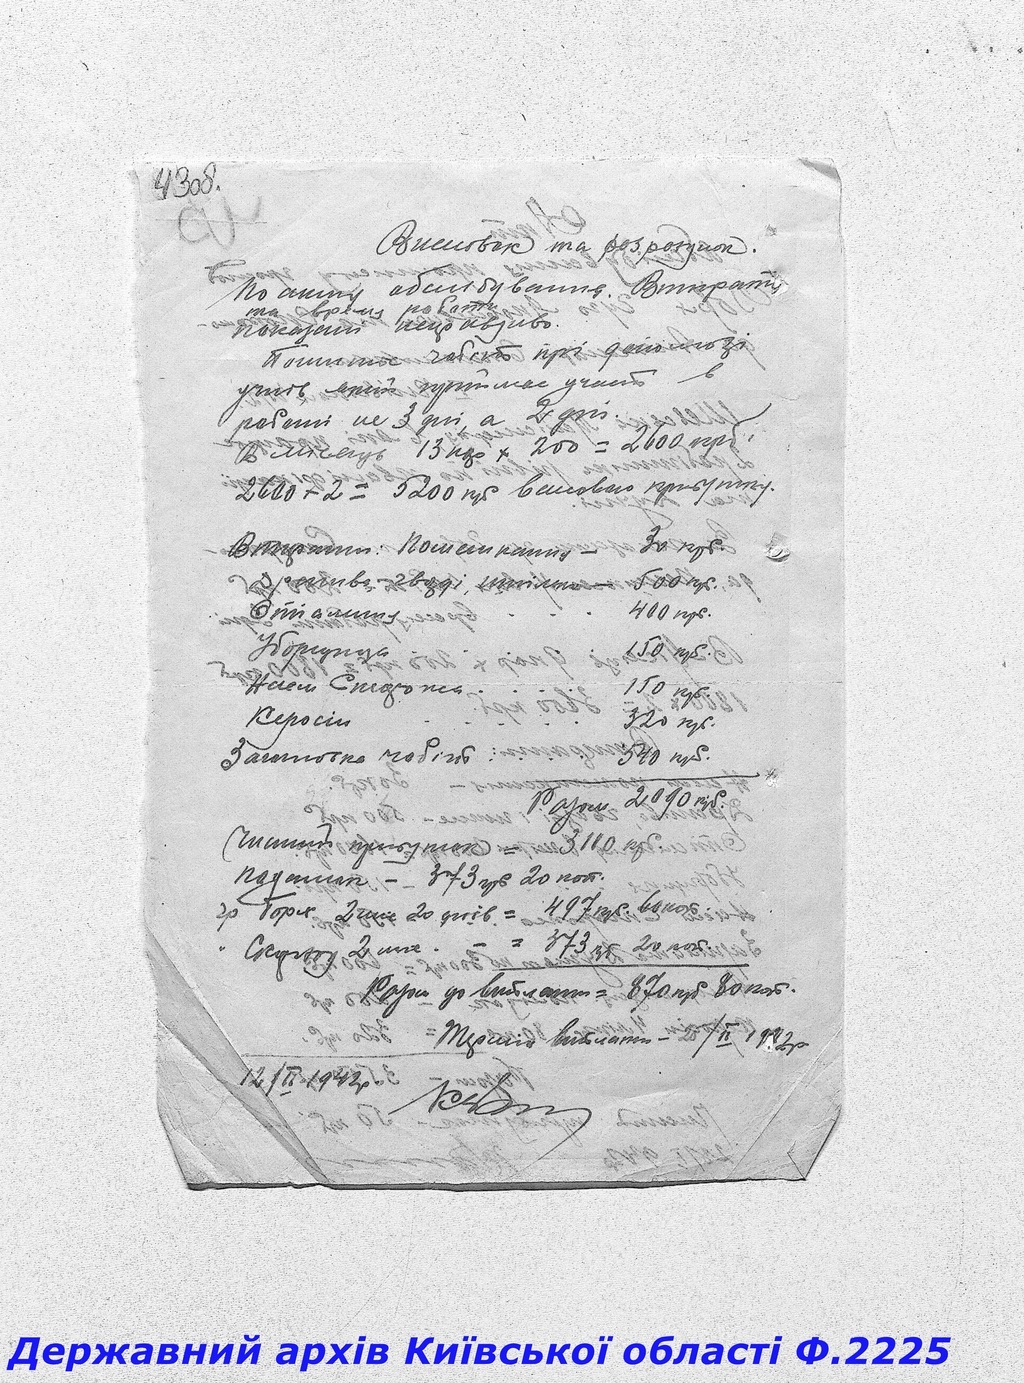 43об.
Висновок та розрозунок.
По акту обслідування. Витрати
та время работи
показані неправдиво.
Пошиття чобіт прі допомозі
учнів який приймає участь в
работі не 3 дні, а 2 дні.
В місяць 13 пар х 200 = 2600 крб.
2600 + 2 = 5200 руб валового прибутку.
Витрати: Помешкання – 30 руб.
Дратва, гвозді, шпільки – 500 руб.
Опалення . . 400 руб.
Уборщиця 150 руб.
Наєм . . . . 150 руб.
Керосін . . . . 320 руб.
Заготовка чобіт : . . . 540 руб.
Разом 2090 руб.
Чистий прибуток = 3110 кр
Податок – 373 руб 20 коп.
гр Горх 2 міс 20 днів = 497 руб. 60 коп.
" 2 міс. – = 373 руб. 20 коп.
Разом до виплати = 870 руб 80 коп.
Термін виплати – /II 1942р
12/II 1942р.
Державний архів Київської області Ф.2225